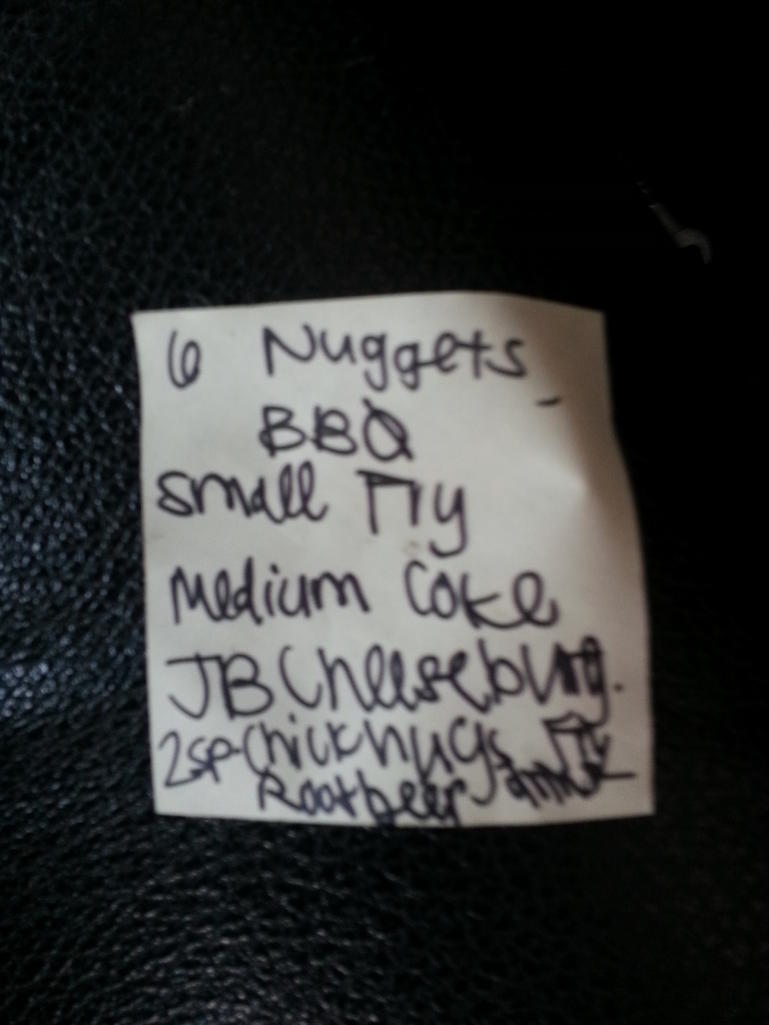 6 Nuggets
BBQ
small Fry
Medium Coke
JB Cheeseburg.
2sp-Chick nugs Fry
Rootbeer drink